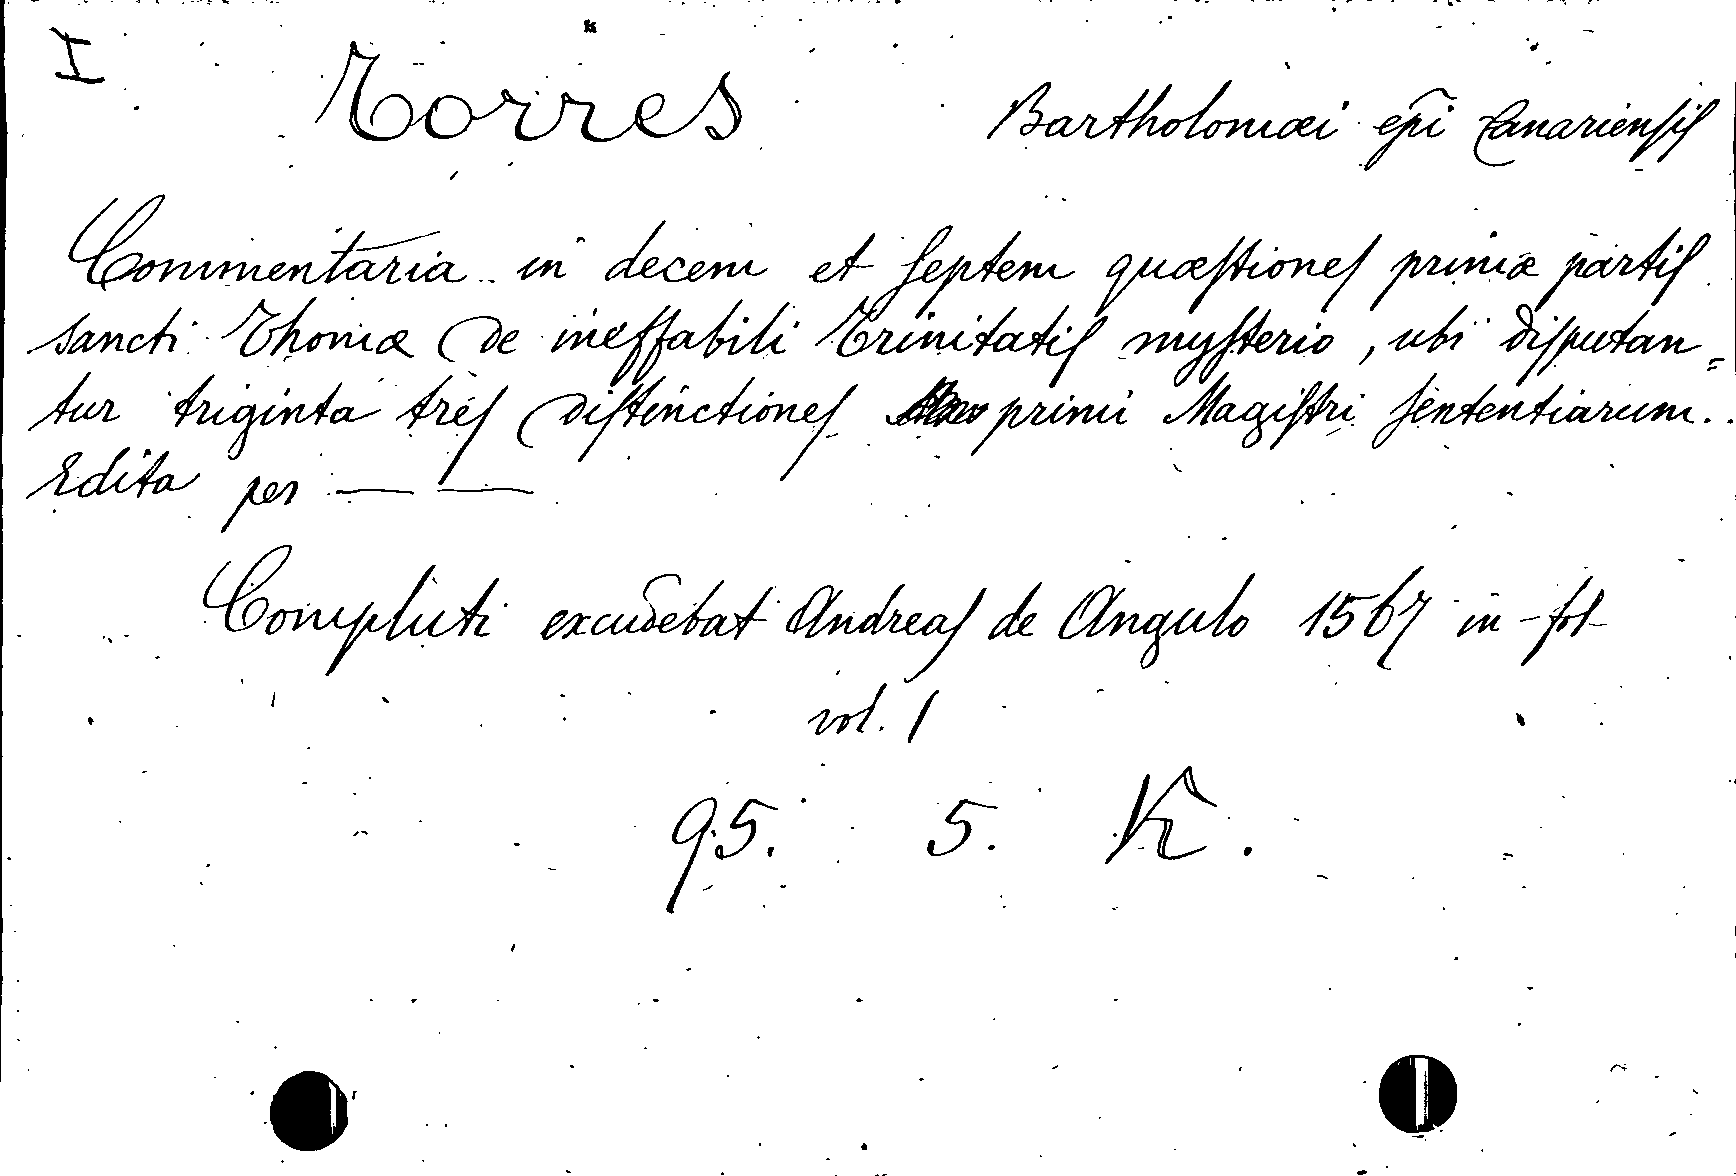 I Torres Bartholomæi epĩ Canariensis
Commentaria in decem et septem quæstiones primæ partis
sancti Thomæ de ineffabili Trinitatis mysterio, ubi disputan=
tur triginta tres distinctiones primi Magistri sententiarum.
Edita per — —
Compluti excudebat Andreas de Angulo 1567 in-fol
vol. 1
95. 5. K.